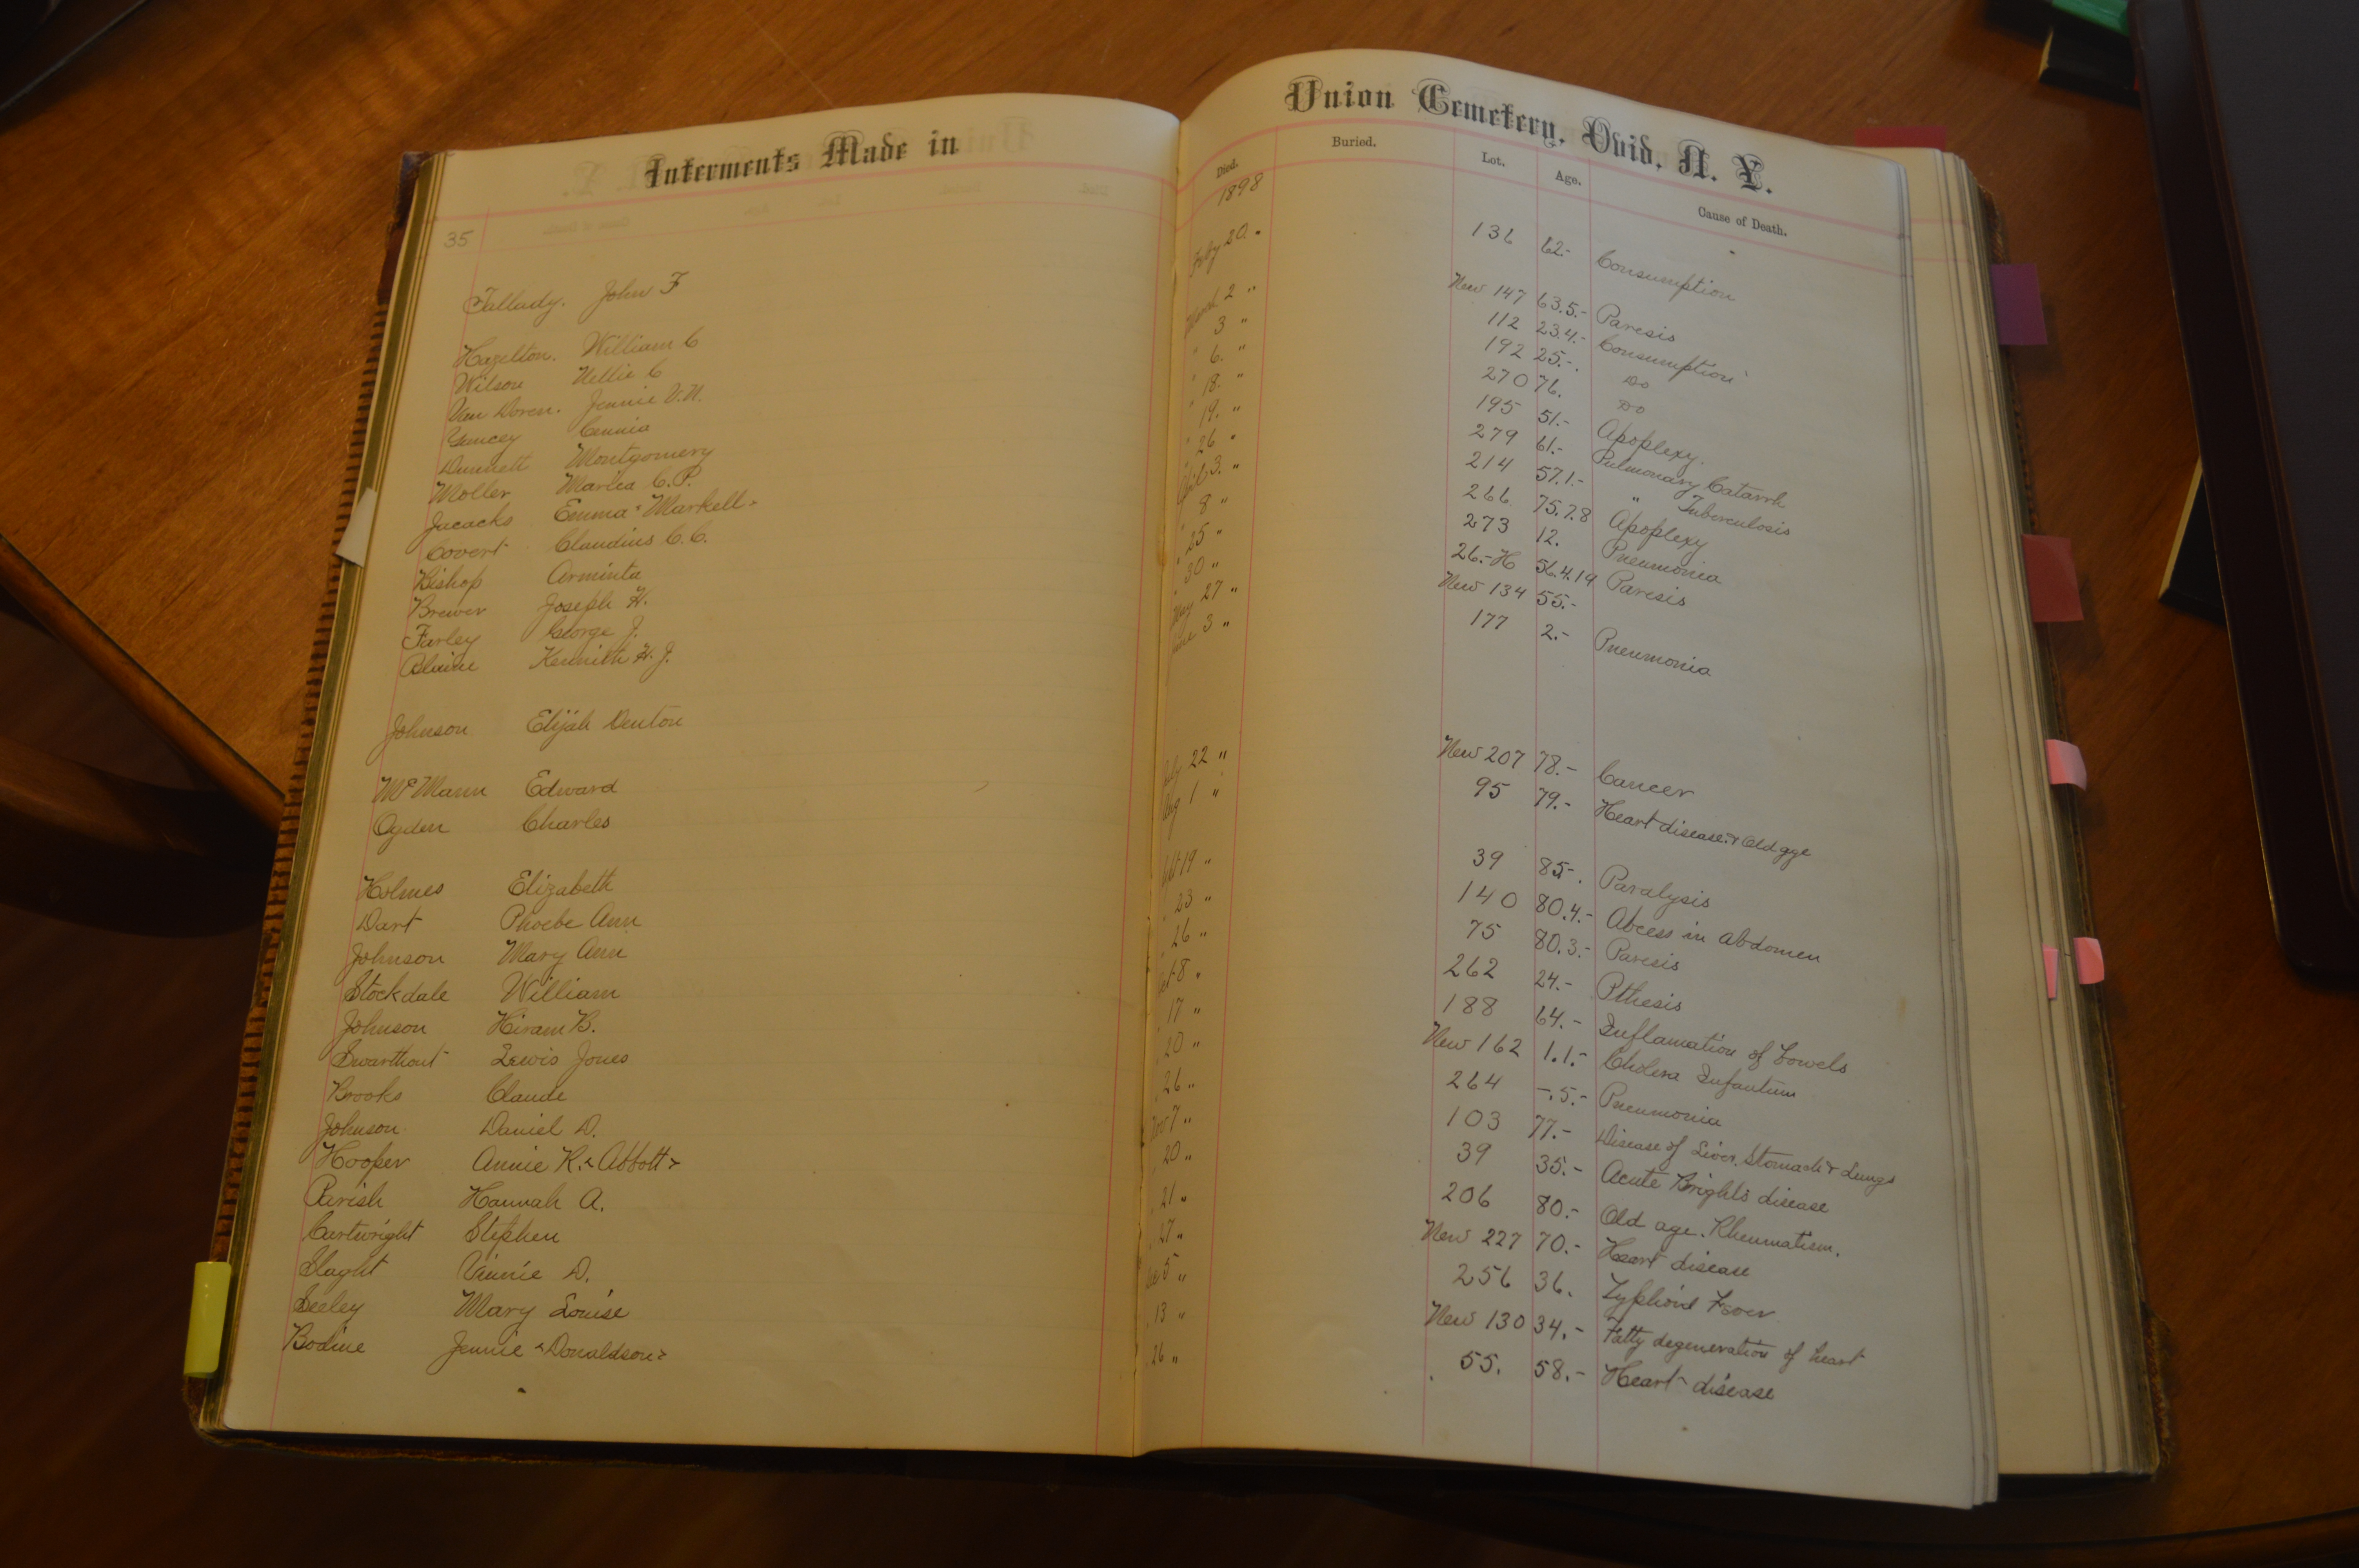 Interments Made in Union Cemetery, Ovid, N. Y.
Died. Buried. Lot. Age. Cause of Death.
35 1898
Tallady. John F Feby 20. 136 62.- Consumption
Hazelton. William C March 2 " New 147 63.5.- Paresis
Wilson Nellie C 3 " 112 23.4.- Consumption
Van Doren. Jennie V.N. " 6. " 192 25.-. Do
Yancey " 18. " 270 76. Do
Dunnett Montgomery " 19. " 195 51.- Apoplexy.
Moller Maria C.P. " 26 " 279 61.- Pulmonary Catarrh
Jacacks Emma "Markell" April 3. " 214 57.1.- " Tuberculosis
Covert Claudius C.C. " 8 " 266 75.7.8 Apoplexy
Bishop Arminta " 25 " 273 12. Pneumonia
Brewer Joseph H. " 30 " 26.-H 56.4.19 Paresis
Farley George J. May 27 " New 134 55.-
Blaine Kennith H.J. June 3 " 177 2.- Pneumonia
Johnson Elijah Denton
McMann Edward July 22 " New 207 78.- Cancer
Ogden Charles Aug 1 " 95 79.- Heart disease & Old age
Holmes Elizabeth Sept 19 " 39 85-. Paralysis
Dart Phoebe Ann " 23 " 140 80.4.- Abcess in abdomen
Johnson Mary Ann " 26 " 75 80.3.- Paresis
Stockdale William Oct 8 " 262 24.- Pthesis
Johnson Hiram B. " 17 " 188 64.- Inflamation of bowels
Swarthout Lewis Jones " 20 " New 162 1.1.- Cholera Infantum
Brooks Claude " 26 " 264 -.5.- Pneumonia
Johnson Daniel D. Nov 7 " 103 77.- Disease of Liver, Stomach & Lungs
Hooper Annie R. "Abbott" " 20 " 39 35.- Acute Brights disease
Parish Hannah A. " 21 " 206 80.- Old age. Rheumatism.
Cartwright Stephen " 27 " New 227 70.- Heart disease
Slaght Vinnie D. Dec 5 " 256 36. Typhoid Fever
Seeley Mary Louise " 13 " New 130 34.- Fatty degeneration of heart
Bodine Jennie "Donaldson" " 26 " 55. 58.- Heart disease